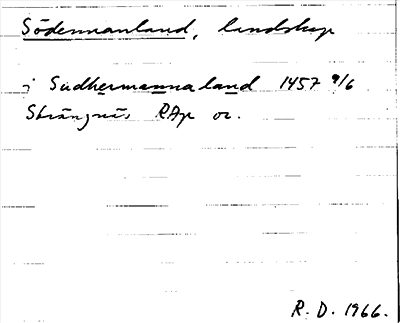 Södermanland, landskap
j Sudhermannaland 1457 9/6
Strängnäs RAp or.
R. D. 1966.